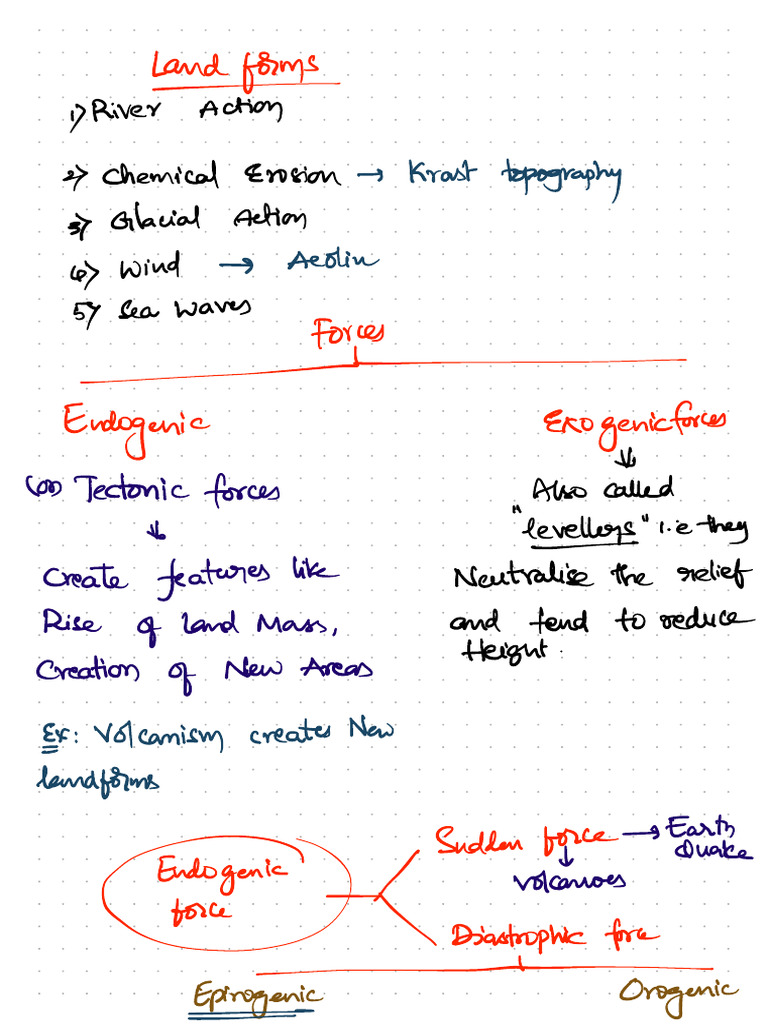 Land forms
1) River Action
2) Chemical Erosion → Krast topography
3) Glacial Action
4) Wind → Aeolin
5) Sea Waves
Forces
Endogenic
(or) Tectonic forces
↓
Create features like
Rise of Land Mass,
Creation of New Areas
Ex: Volcanism creates New
landforms
Exogenic forces
↓
Also called
"levellers" i.e they
Neutralise the relief
and tend to reduce
Height.
Endogenic
force
Sudden force → Earth
Quake
↓
Volcanoes
Diastrophic forc
Epirogenic
Orogenic